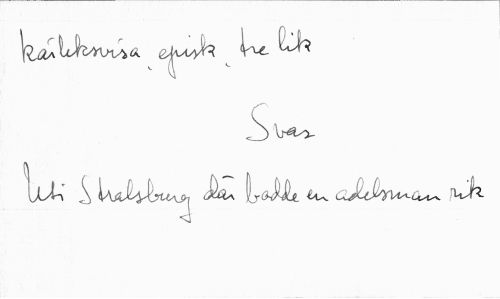 kärleksvisa, episk, tre lik
Svar
Uti Stralsburg där bodde en adelsman rik